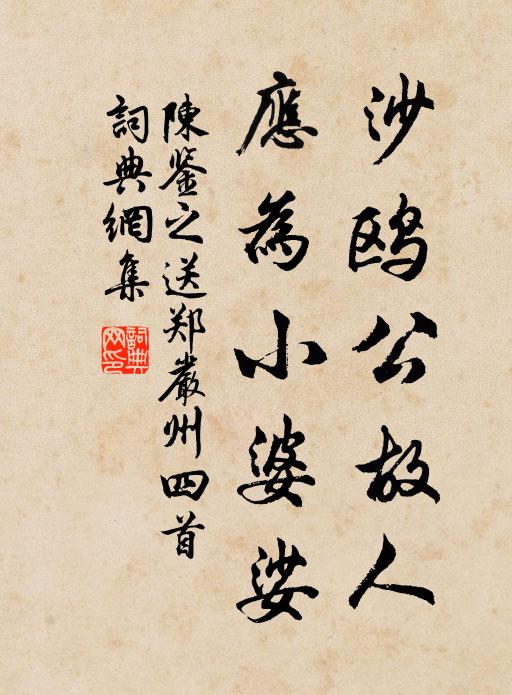 沙鸥公故人
應為小婆娑
陳鉴之送郑嚴州四首
詞典網集
詞典网印